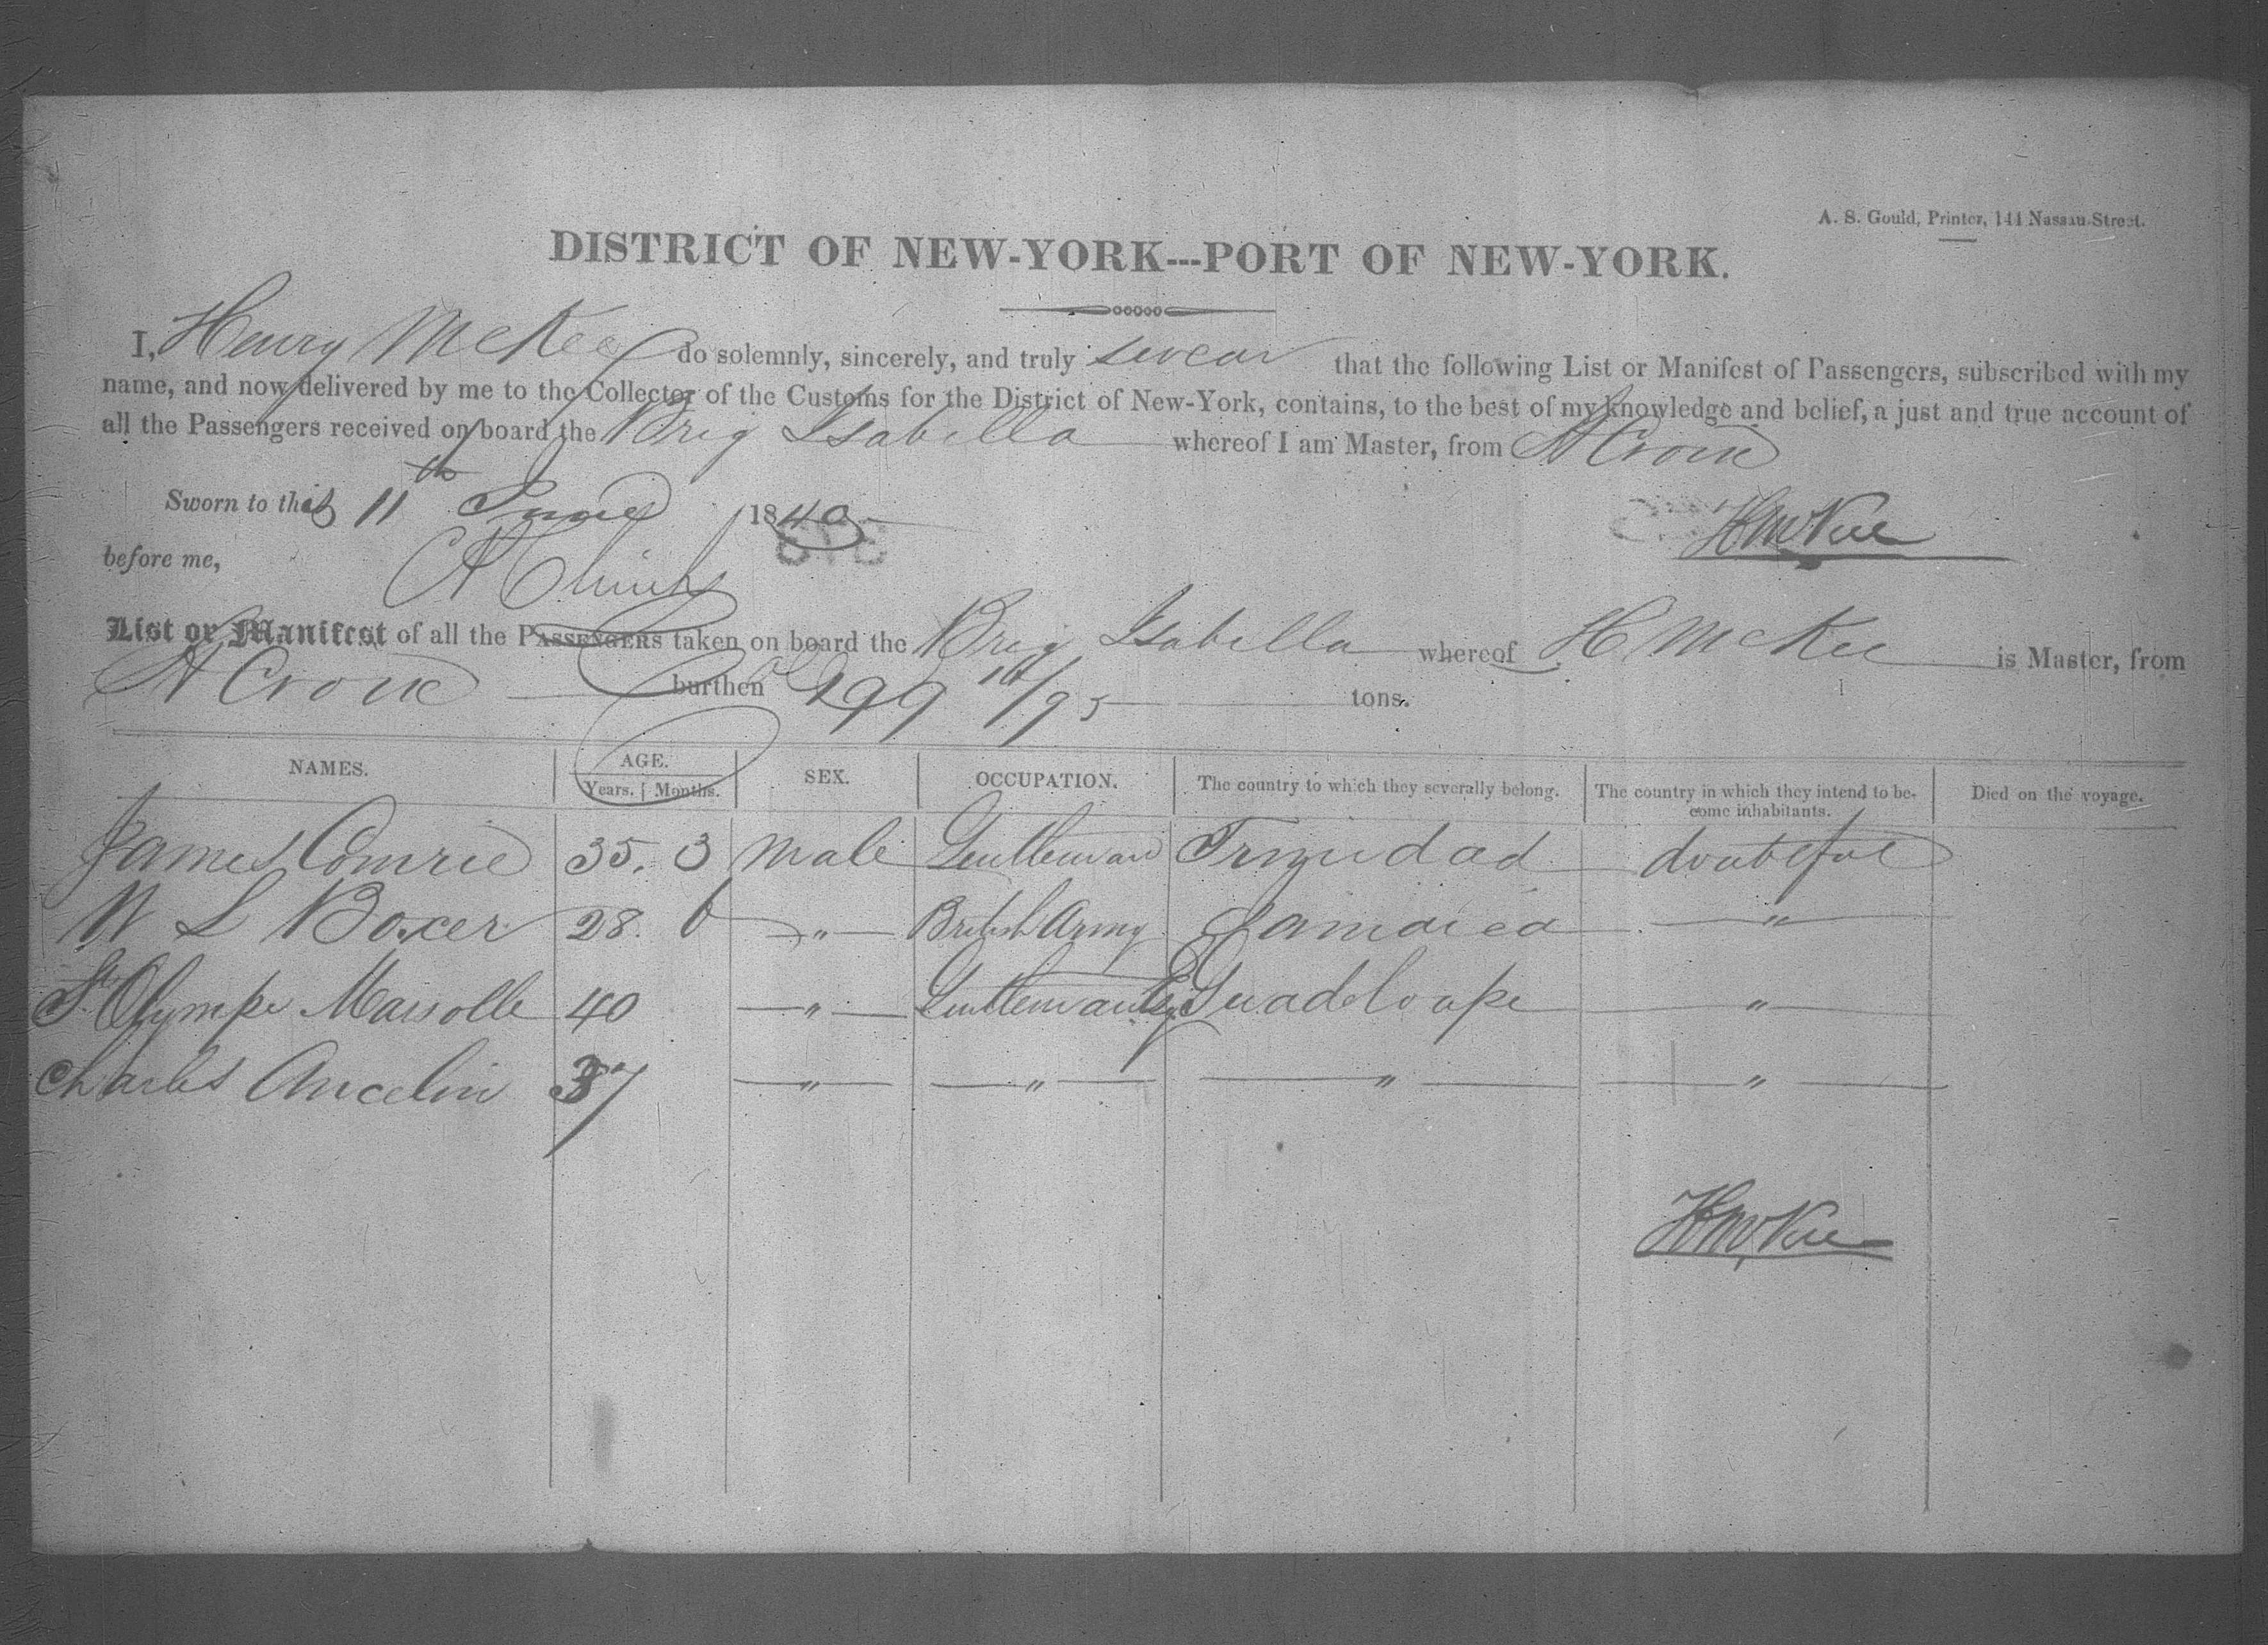 A. S. Gould, Printer, 144 Nassau Street.
DISTRICT OF NEW-YORK---PORT OF NEW-YORK.
I, Henry McKee do solemnly, sincerely, and truly swear that the following List or Manifest of Passengers, subscribed with my
name, and now delivered by me to the Collector of the Customs for the District of New-York, contains, to the best of my knowledge and belief, a just and true account of
all the Passengers received on board the Brig Isabella whereof I am Master, from St Croix
Sworn to this 11th June 1840
H McKee
before me,
List or Manifest of all the PASSENGERS taken on board the Brig Isabella whereof H McKee is Master, from
St Croix burthen 199 /95 tons.
NAMES. AGE. SEX. OCCUPATION. The country to which they severally belong. The country in which they intend to be- Died on the voyage.
Years. Months. come inhabitants.
James Comrie 35. 3 male Gentleman Trinidad doubtful
W L Boxer 28. 6 " British Army Jamaica "
St Olympe Massolle 40 " Gentleman Guadeloupe "
Charles Ancelin 37 " " " "
H McKee